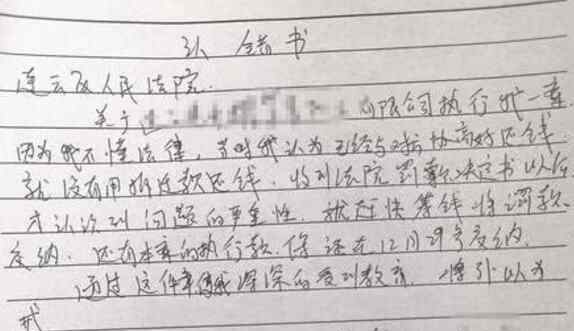 认错书
连云区人民法院：
关于 有限公司执行我一案
因为我不懂法律，当时我认为已经与对方协商好还钱
就没有用拆迁款还钱．收到法院罚款决定书以后
才认识到问题的严重性．就赶快筹钱将罚款
交纳．还有本案的执行款．保证在12月29号交纳．
通过这件事使我深深的受到教育．将引以为
戒